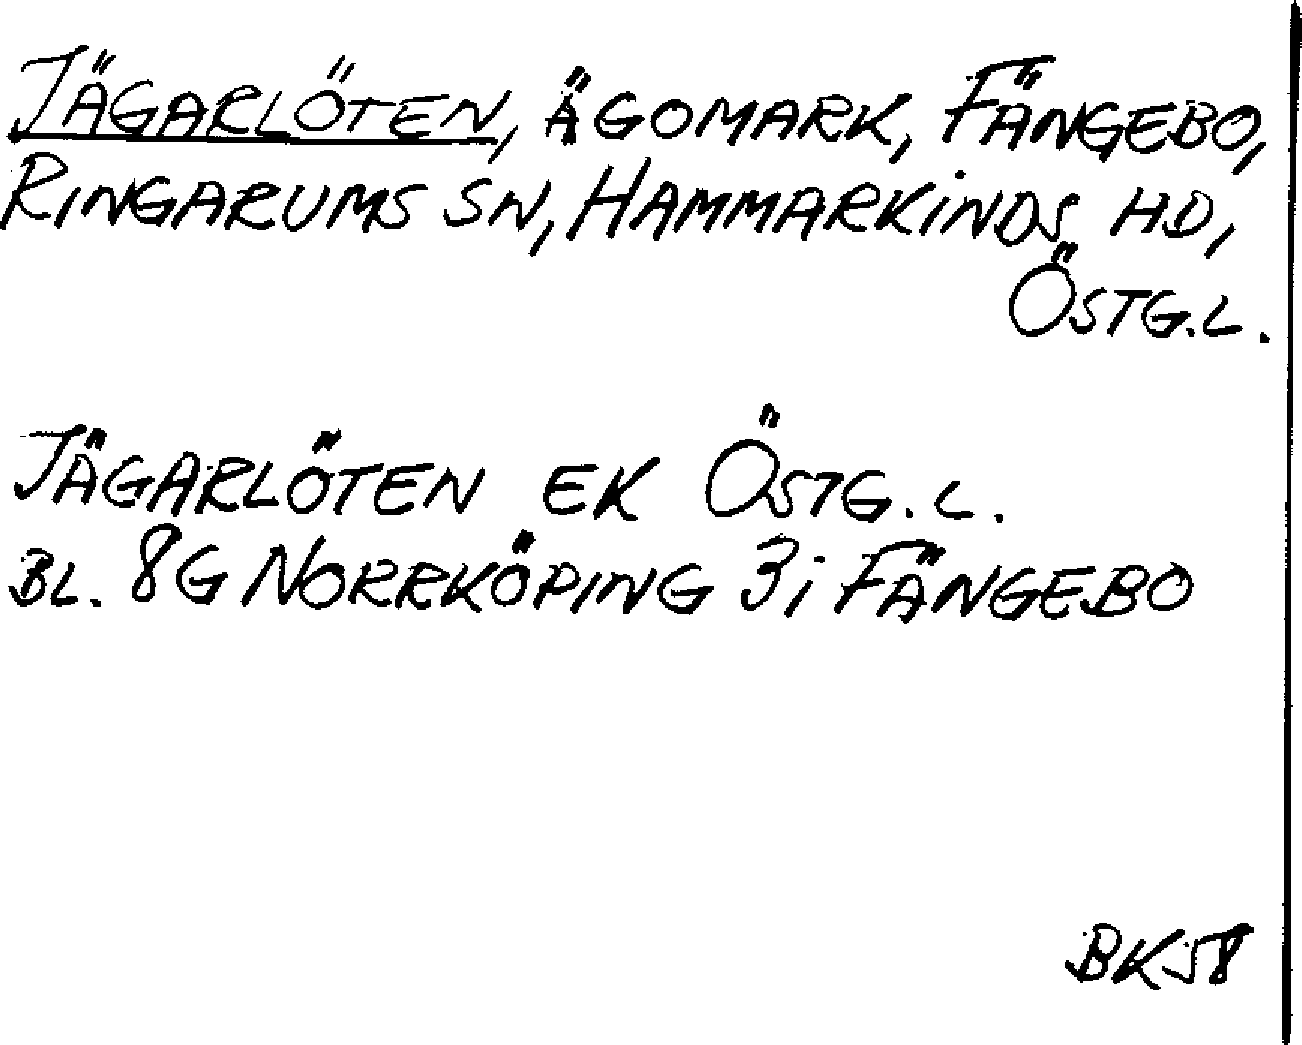 JÄGARLÖTEN, ÄGOMARK, FÄNGEBO,
RINGARUMS SN, HAMMARKINDS HD,
ÖSTG.L.
JÄGARLÖTEN EK ÖSTG.L.
BL. 8G NORRKÖPING 3i FÄNGEBO
BK58